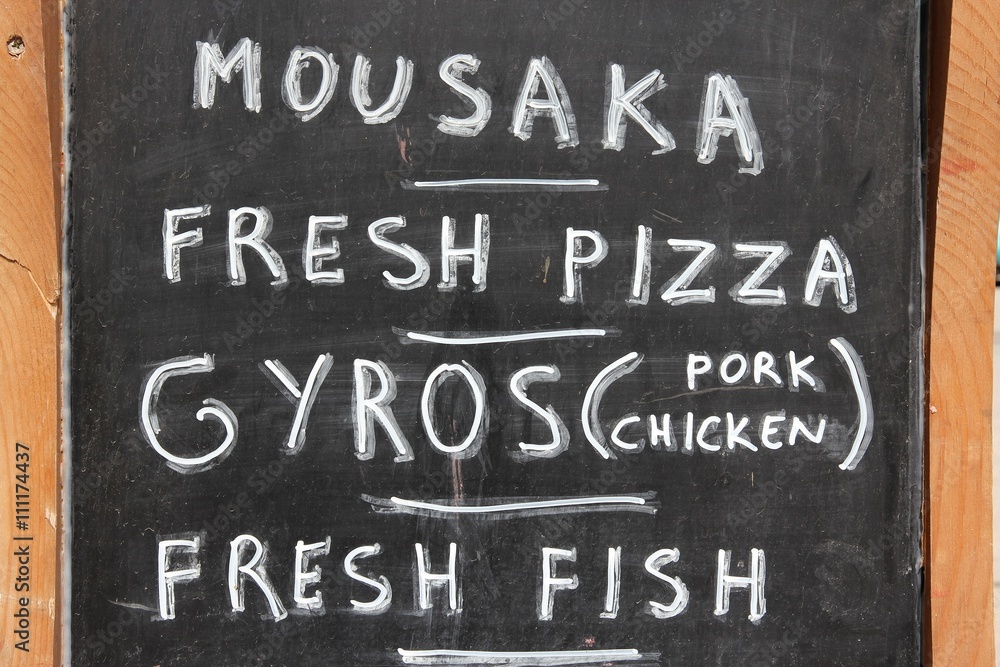 MOUSAKA
FRESH PIZZA
GYROS (PORK
CHICKEN)
FRESH FISH
Adobe Stock | #111174437